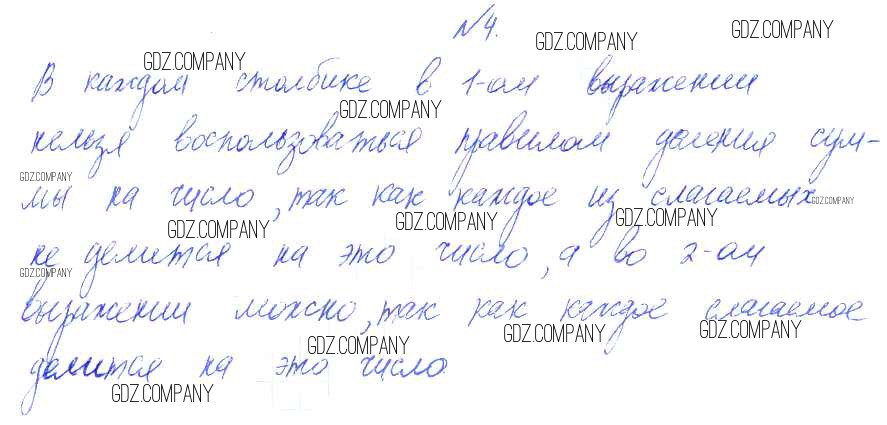 №4.
В каждом столбике в 1-ом выражении
нельзя воспользоваться правилом деления сум-
мы на число, так как каждое из слагаемых
не делится на это число, а во 2-ом
выражении можно, так как каждое слагаемое
делится на это число
GDZ.COMPANY
GDZ.COMPANY
GDZ.COMPANY
GDZ.COMPANY
GDZ.COMPANY
GDZ.COMPANY
GDZ.COMPANY
GDZ.COMPANY
GDZ.COMPANY
GDZ.COMPANY
GDZ.COMPANY
GDZ.COMPANY
GDZ.COMPANY
GDZ.COMPANY